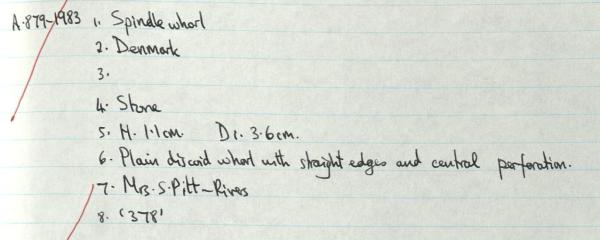 A.879-1983 1. Spindle whorl
2. Denmark
3.
4. Stone
5. H. 1.1cm. Di. 3.6cm.
6. Plain discoid whorl with straight edges and central perforation.
7. Mrs. S. Pitt-Rivers
8. '378'